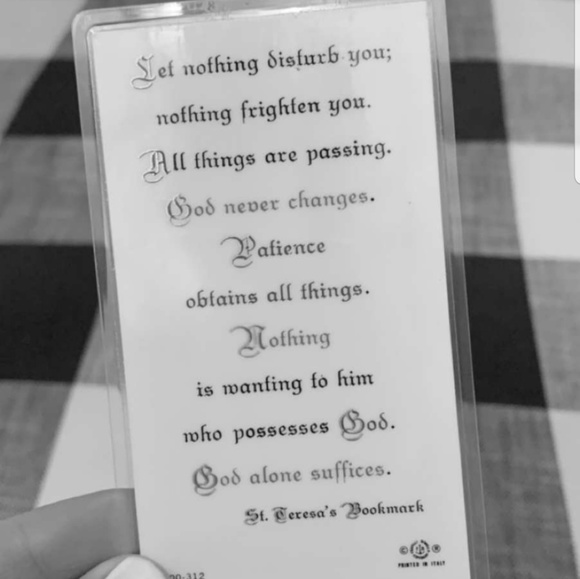 Let nothing disturb you;
nothing frighten you.
All things are passing.
God never changes.
Patience
obtains all things.
Nothing
is wanting to him
who possesses God.
God alone suffices.
St. Teresa's Bookmark
©
®
PRINTED IN ITALY